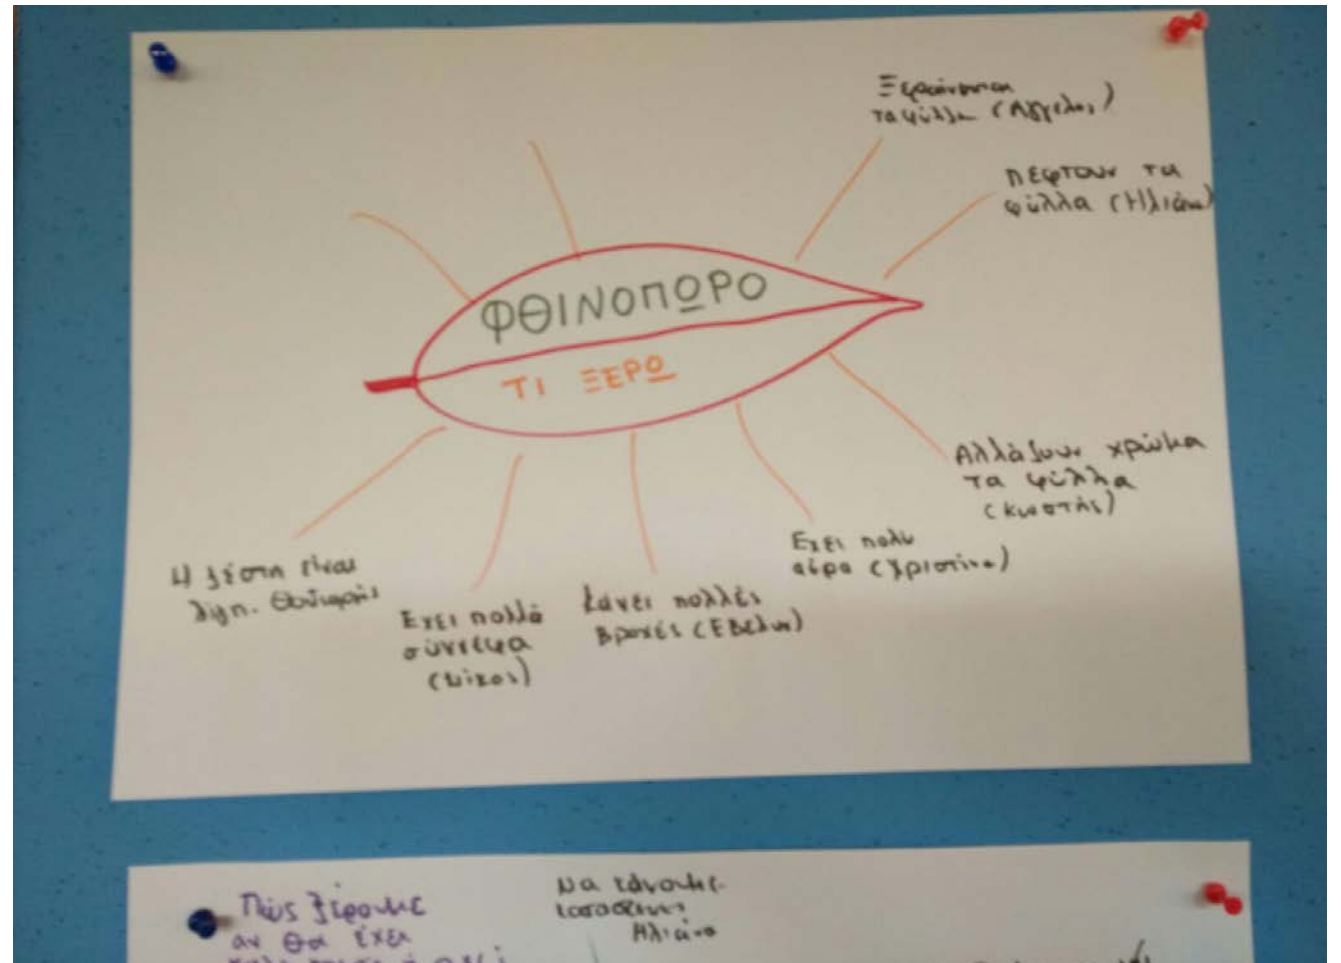 Ξεραίνονται
τα φύλλα (Άγγελος)
πέφτουν τα
φύλλα (Ηλιάνα)
ΦΘΙΝΟΠΩΡΟ
ΤΙ ΞΕΡΩ
Αλλάζουν χρώμα
τα φύλλα
(Κωστής)
Έχει πολύ
αέρα (Χριστίνα)
Κάνει πολλές
βροχές (Εβελυν)
Έχει πολλά
σύννεφα
(Νίκος)
Η ζέστη είναι
λίγη.
Πώς ξέρουμε
αν θα έχει
Να κάνουμε
Ηλιάνα